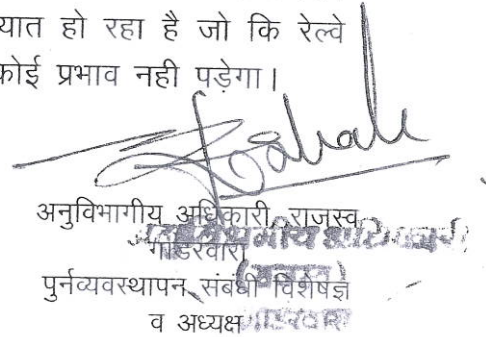 यात हो रहा है जो कि रेल्वे
कोई प्रभाव नही पड़ेगा।
अनुविभागीय अधिकारी, राजस्व
गाडरवारा
पुर्नव्यवस्थापन संबंधी विशेषज्ञ
व अध्यक्ष